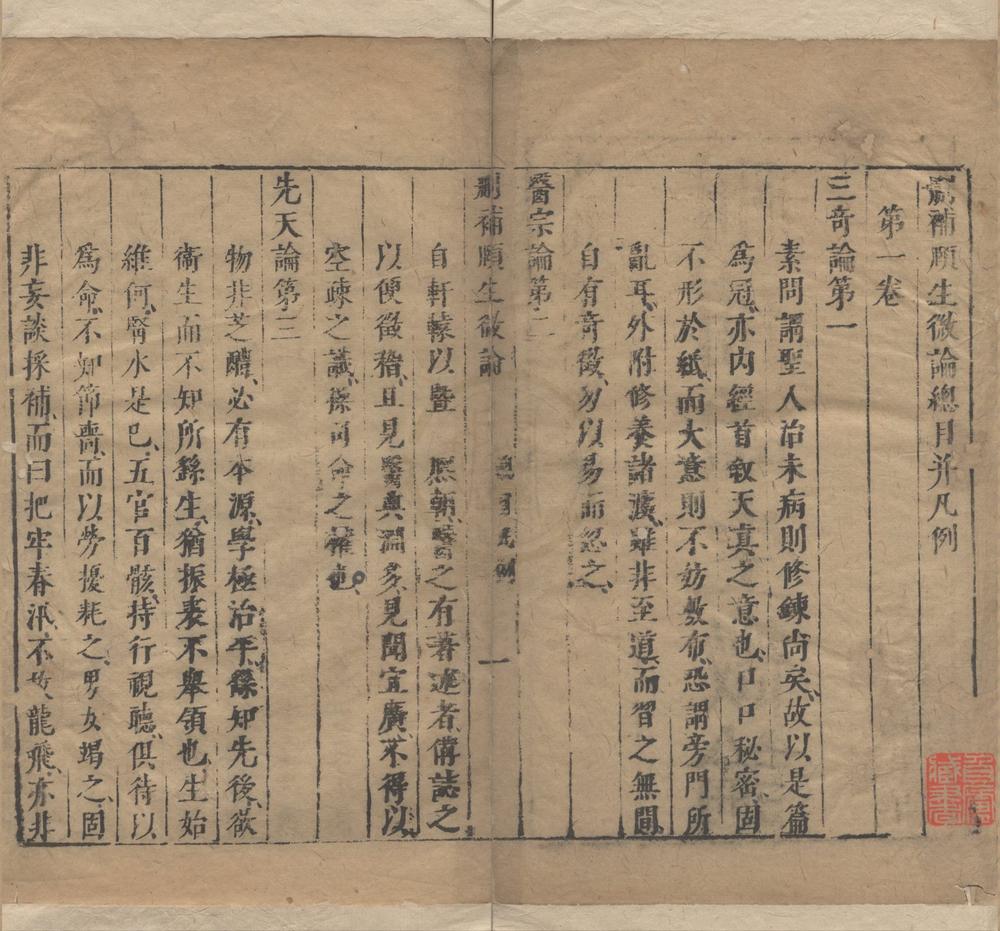 刪補頤生微論總目并凡例
第一卷
三奇論第一
素問謂聖人治未病則修鍊尚矣故以是篇
為冠亦內經首敘天真之意也口口秘密固
不形於紙而大意則不妨敷布恐謂旁門所
亂耳外附修養諸濅雖非至道而習之無間
自有奇徵勿以易而忽之
醫宗論第二
刪補頤生微論 一
自軒轅以暨 熙朝醫之有著述者傋誌之
以便徵稽且見醫典淵多見聞宜廣不得以
空疎之識操司命之權也
先天論第三
物非芝醴必有本源學極治平繇知先後欲
衞生而不知所繇生猶振裘不舉領也生始
維何腎水是已五官百骸持行視聽俱待以
為命不知節嗇而以勞擾耗之男女竭之固
非妄談採補而曰把牢春汛不放龍飛亦非